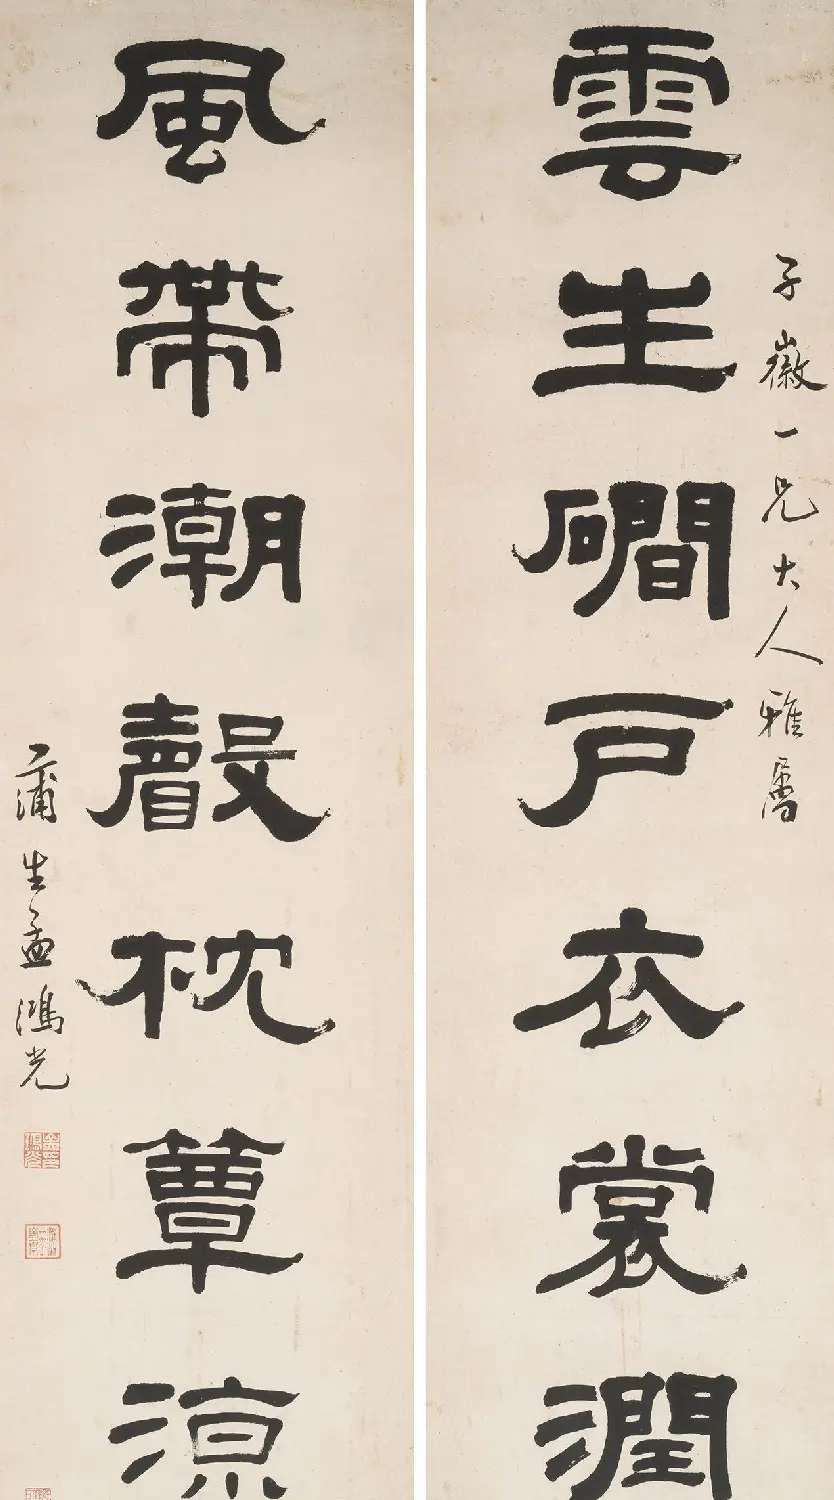 子徽一兄大人雅屬
雲生磵戶衣裳潤
風帶潮聲枕簟涼
蒲生孟鴻光